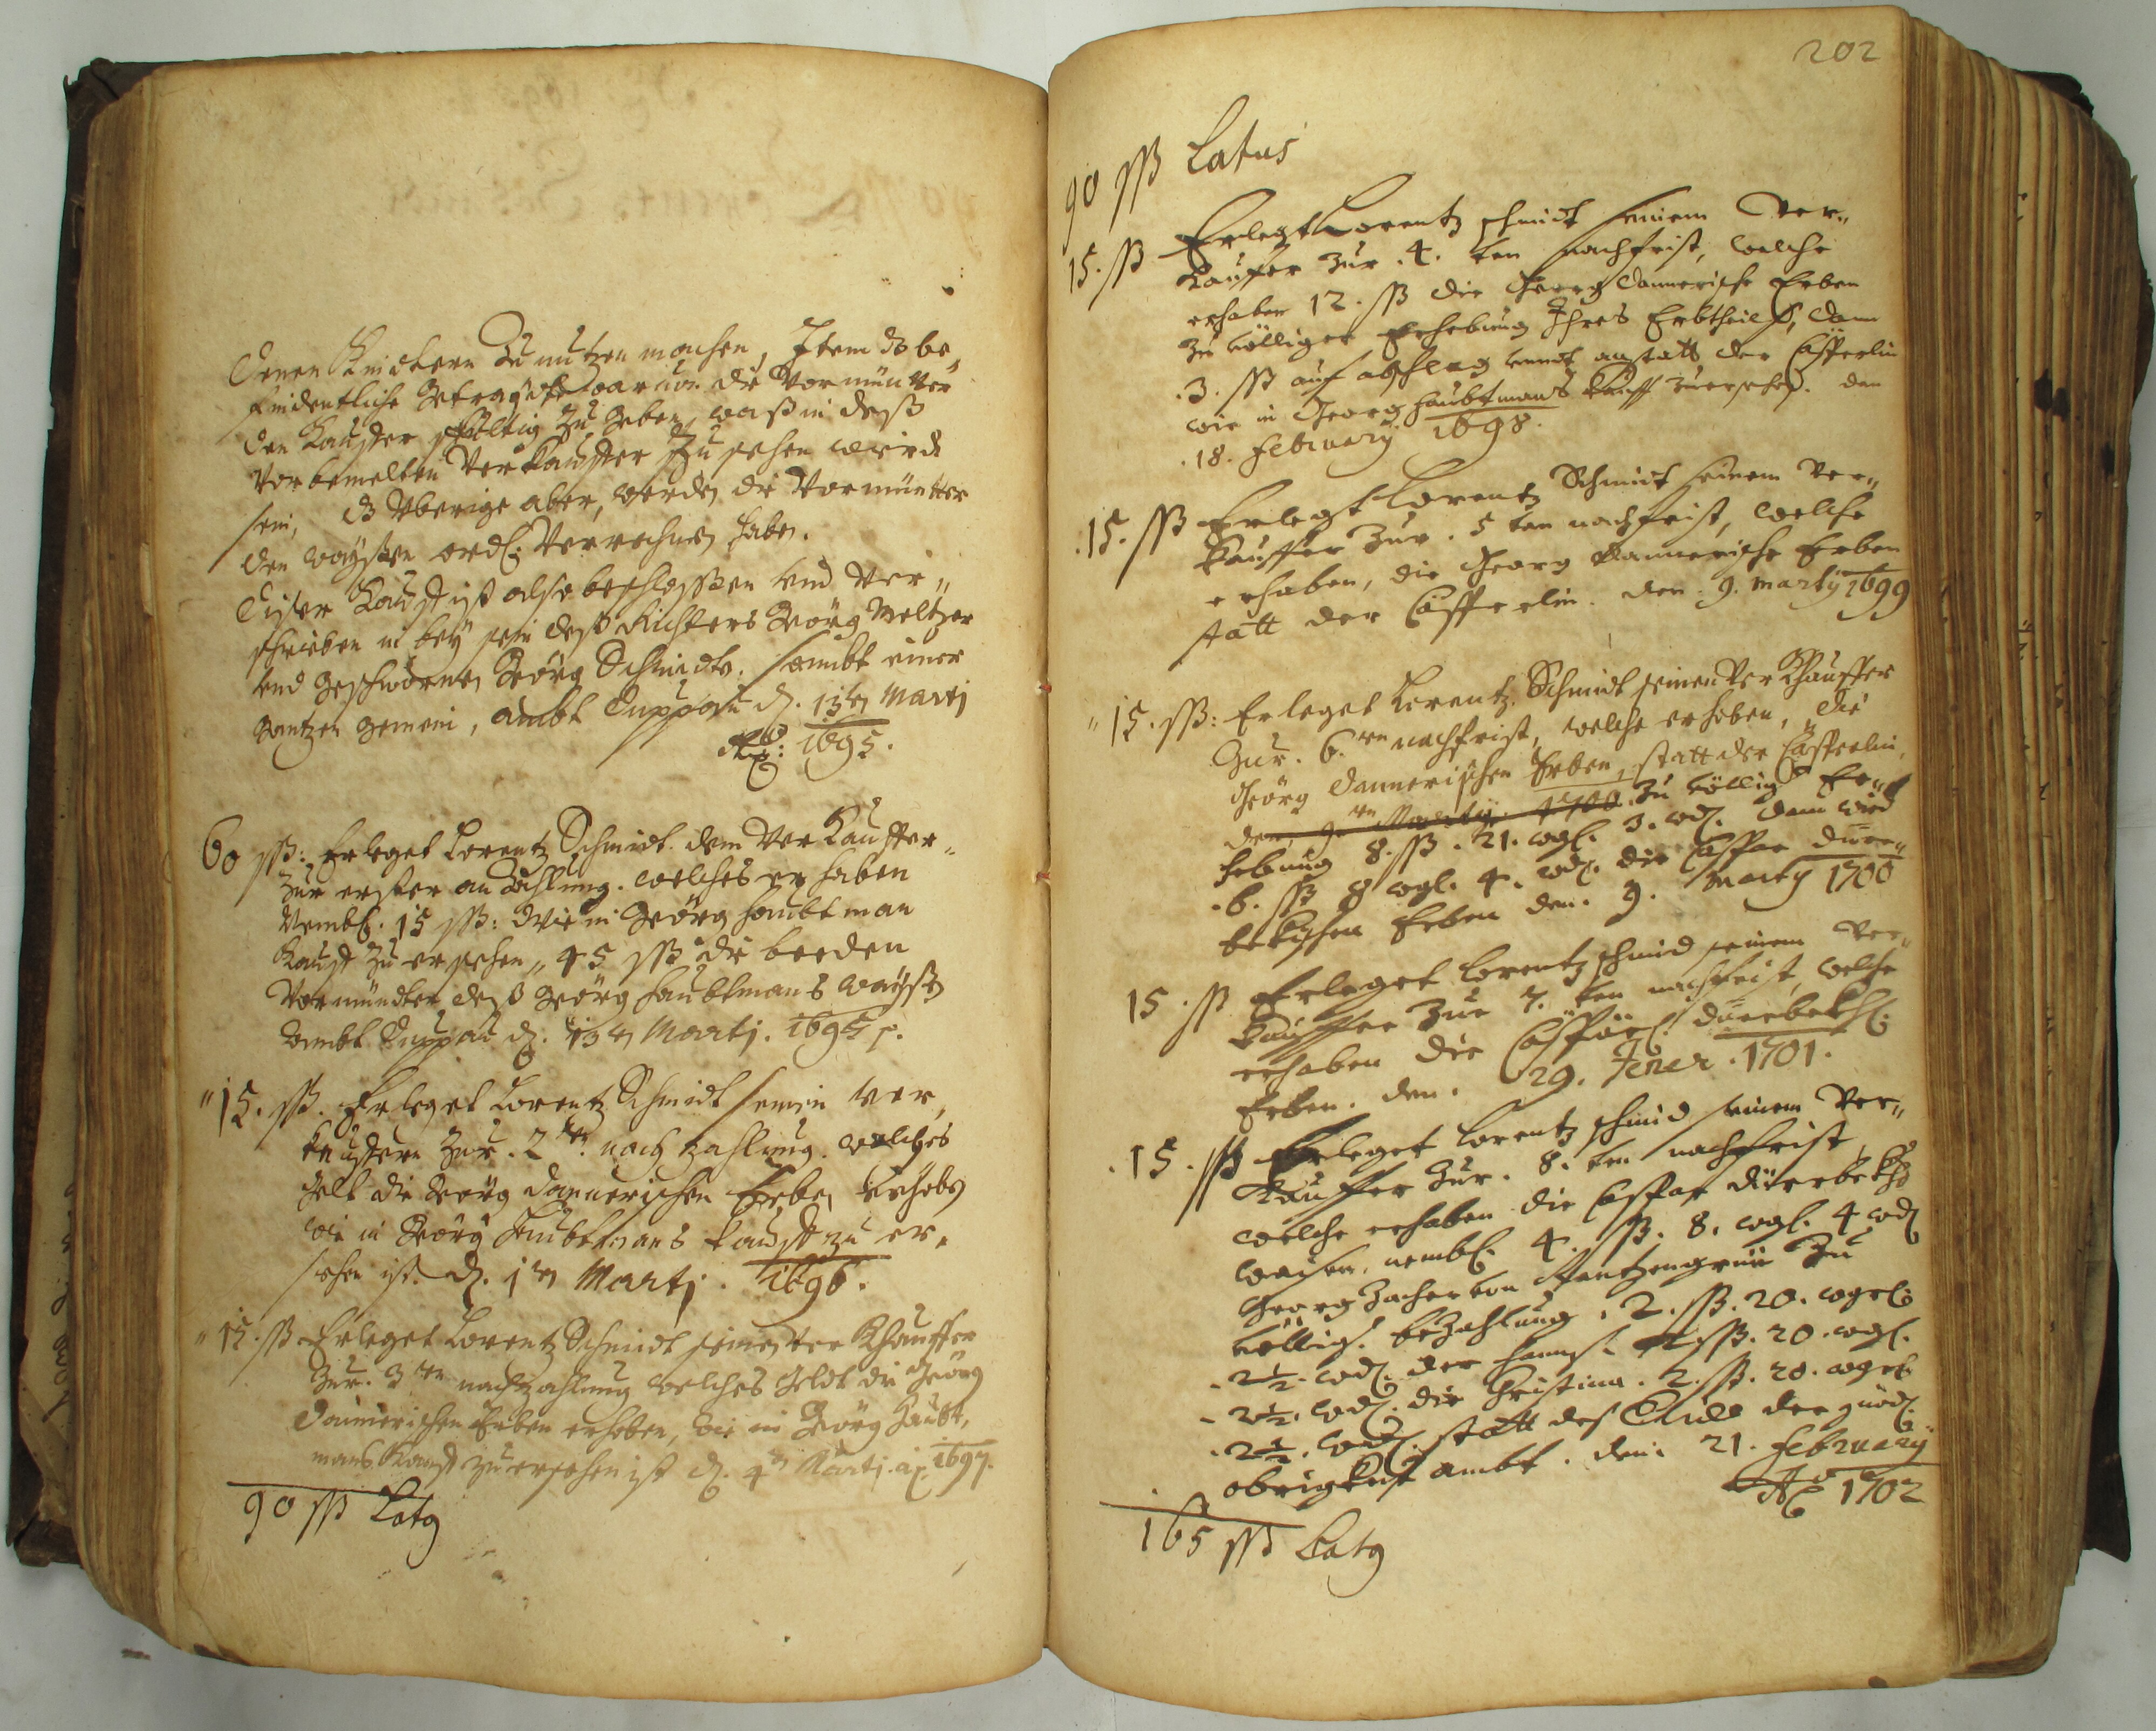 denen Kindern zu nutzen machen, Item dz be„
findentliche Getraydt daruon die Vormünder
den Kauffer schuldig zu geben, waß in deß
Vorbemelten Verkauffer zu sehen wirdt
sein, dz Uberige aber, werden die Vormünder
den waysen ordl: Verrechnen haben.
Dieser Kauff ist also beschlossen und ver„
schrieben in bey sein deß Richters Görg Meltzer
und geschwornen Görg Schmidts. sambt einer
gantzen gemein, ambt Duppau d. 13ten Martj
Ao: 1695.
60 ßß: Erleget Lorentz Schmidt dem Verkauffer„
zur erster anzahlung. welches erhaben
Nembl. 15 ßß: wie in Görg Haubtman
Kauff zu ersehen, 45 ßß die beeden
Vormündter deß Görg Haubtmans wayßen
Ambt Duppau d. 13ten Martj. 1695
15. ßß. Erleget Lorentz Schmidt seinen ver„
kauffern zur. 2ten. nachzahlung. welches
gelt die Görg Dannerischen Erben erhoben
wie in Görg Haubtmans kauff zu er„
sehen ist. d. 1ten Martj. 1696.
15. ßß Erleget Lorentz Schmidt seinen ver Khauffer
Zur. 3ten nachzahlung welches geldt die Geörg
Dannerischen Erben erhoben, wie in Geörg Haubt„
mans Kauff zu ersehen ist d. 4ten Martj. ao. 1697.
90 ßß Latg
202
90 ßß Latus
15. ß Erlegt Lorentz schmidt seinem Ver„
kauffer zur .4. ten nachfrist, welche
erhaben 12. ßß die Georg Dannerische Erben
zu völliger Erhebung Ihres Erbtheilß, dann
.3. ßß auf abschlag anstatt der Casperlin
wie in Georg Haubtmans kauff zuersehen. den
.18. February 1698.
.15. ßß Erlegt Lorentz Schmidt seinem Ver„
kauffer Zur. 5 ten nachfrist, welche
erhaben, die Georg Dannerische Erben
statt der Casperlin. den. 9. martij 1699
15. ßß: Erleget Lorentz Schmidt seinen Ver Khauffer
Zur. 6.ten nachfrist, welche erhoben, die
Geörg Dannerischen Erben, statt der Casperlin,
den 9ten Martij 1700. zu völliger Er„
hebung 8. ßß. 21. wgl. 3. wd. dann
.6. ßß 8 wgl. 4. wd. die Caspar Dürr„
bekischen Erben den. 9. Martij 1700
15. ßß Erleget Lorentz schmid seinem Ver„
kauffer Zur 7. ten nachfrist, welche
erhaben die Caspar Dürrbekh.
Erben. den. 29. Jener. 1701.
.15. ßß Erleget Lorentz schmid seinem Ver„
kauffer Zur. 8. ten nachfrist,
welche erhaben die Caspar Dürrbekh
waisen. nembl. 4. ßß. 8. wgl. 4 wd
Georg Zacher von Rantzengrün Zu
völlig. bezahlung. 2. ßß. 20. wgl.
. 2½. wd. der 2 ßß. 20. wgl.
. 2½. wd. die Christina. 2. ßß. 20. wgl.
. 2½. wd. statt des der gnäd.
obrigkeit ambt. den. 21. February
Ao 1702
165 ßß Latg